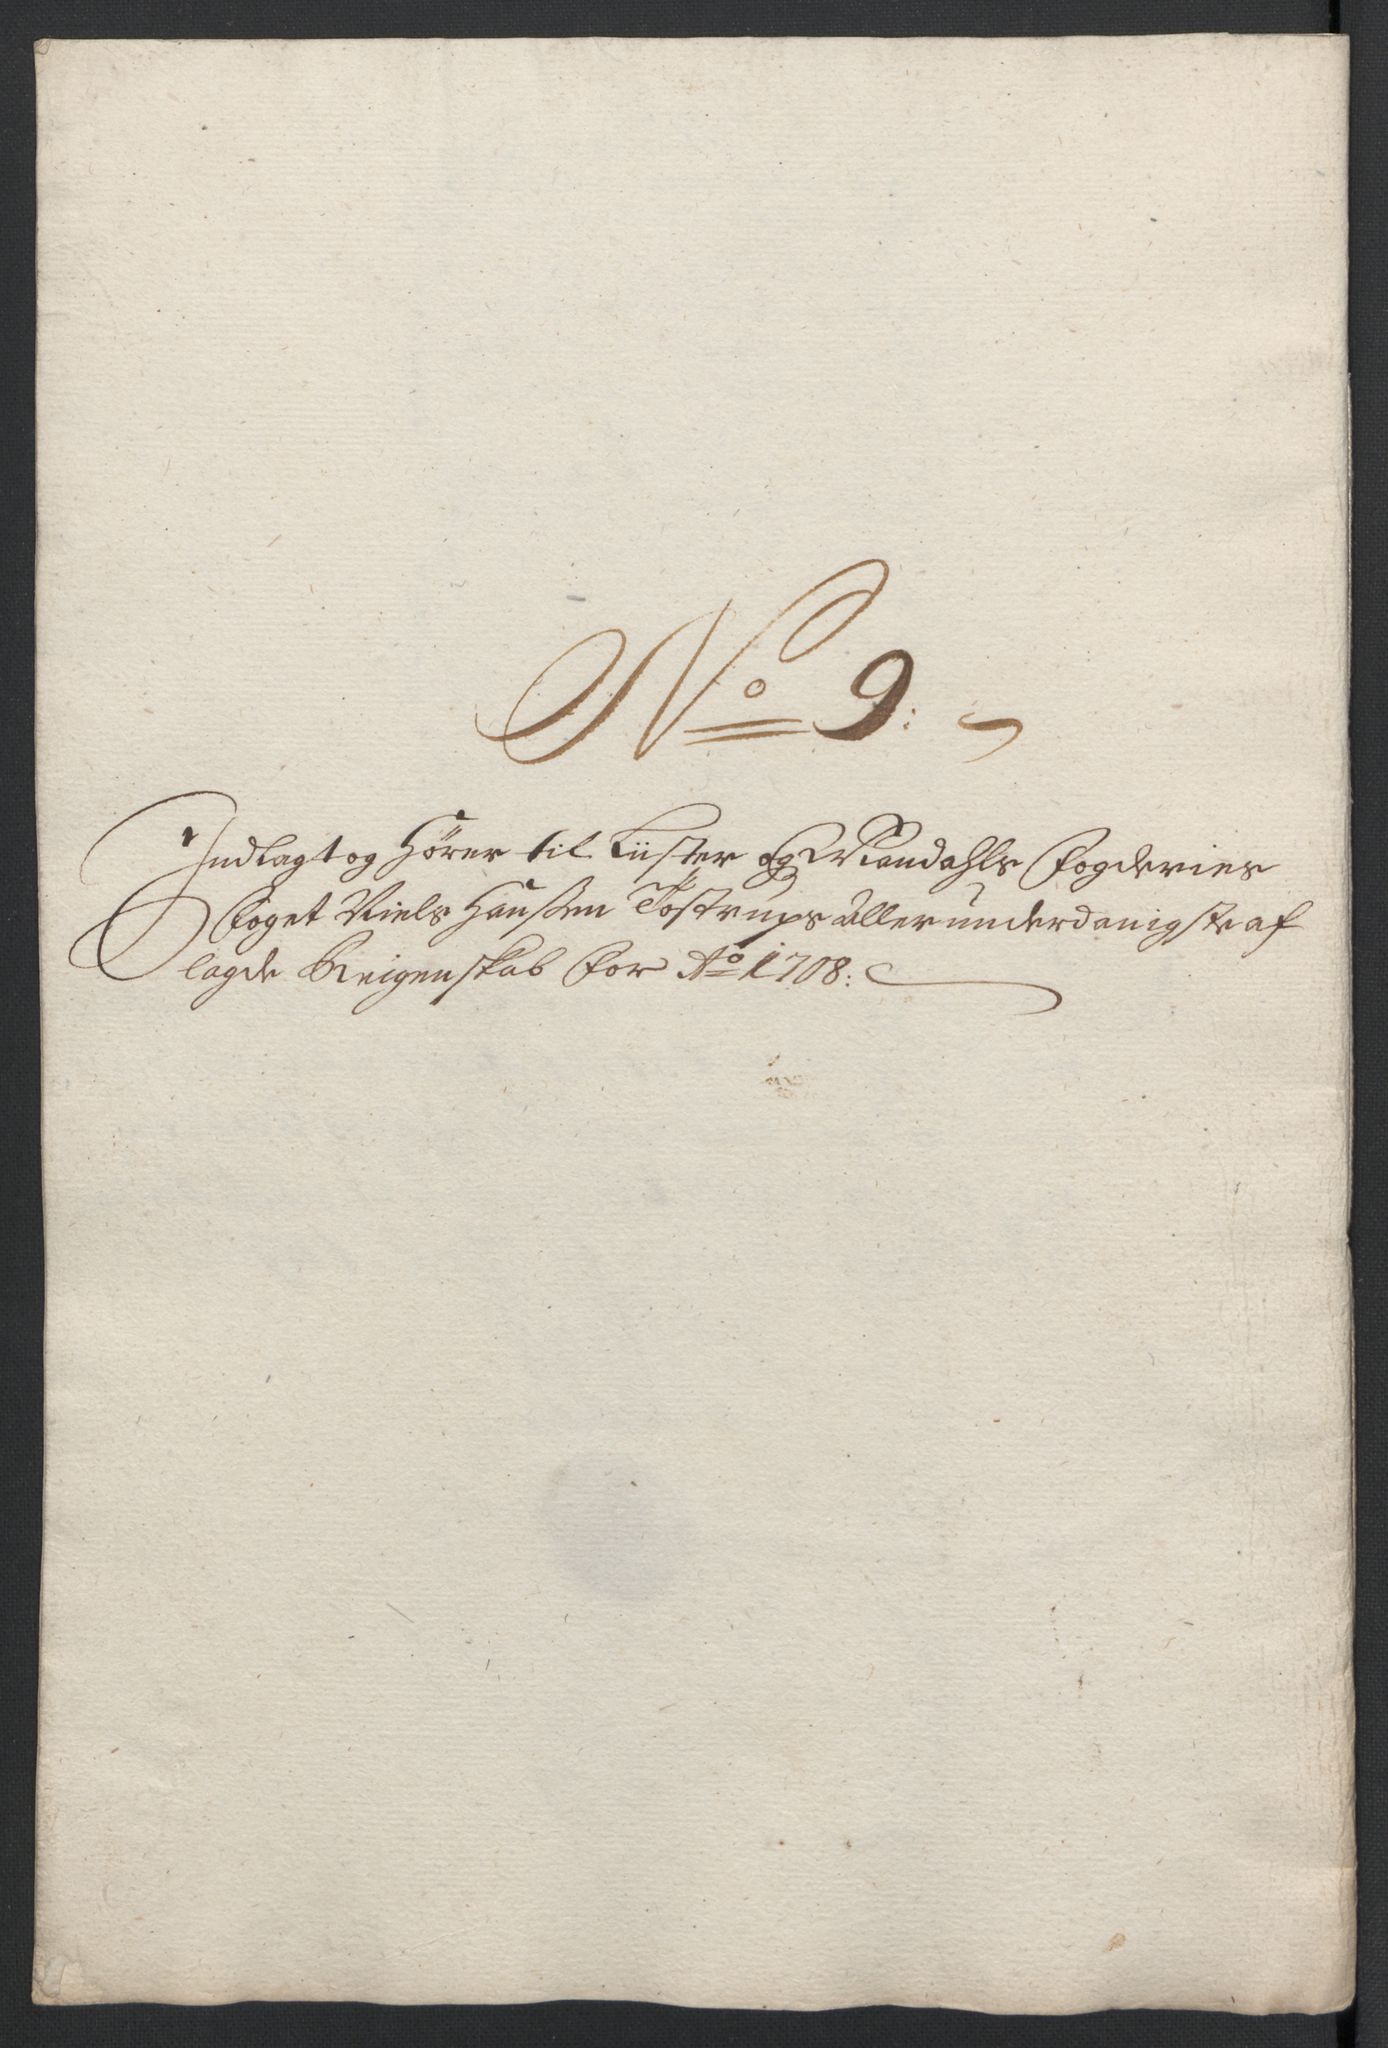 No 9:
Indlagt og hörer til Lister og Mandahls Fogderies
Foget Niels Hanßen Tostrups allerunderdanigste af
lagde Reigenskab for Ao 1708: